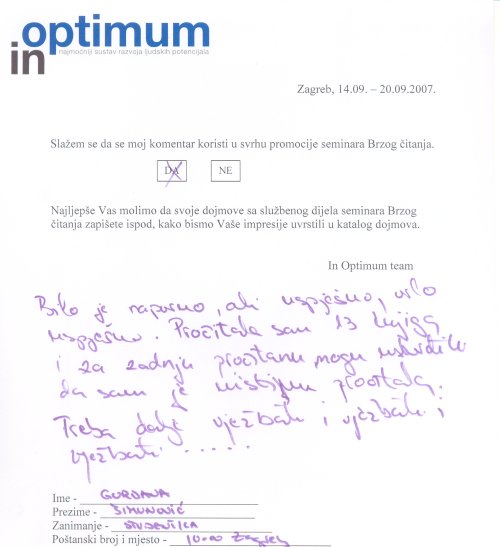 in optimum
najmoćniji sustav razvoja ljudskih potencijala
Zagreb, 14.09. – 20.09.2007.
Slažem se da se moj komentar koristi u svrhu promocije seminara Brzog čitanja.
DA NE
Najljepše Vas molimo da svoje dojmove sa službenog dijela seminara Brzog
čitanja zapišete ispod, kako bismo Vaše impresije uvrstili u katalog dojmova.
In Optimum team
Bilo je naporno, ali uspješno, vrlo
uspješno. Pročitala sam 13 knjiga
i za zadnju pročitanu mogu utvrditi
da sam je uistinu pročitala.
Treba dalje vježbati i vježbati i
vježbati ......
Ime - GORDANA
Prezime - ŠIMUNOVIĆ
Zanimanje - STUDENTICA
Poštanski broj i mjesto - 10000 Zagreb